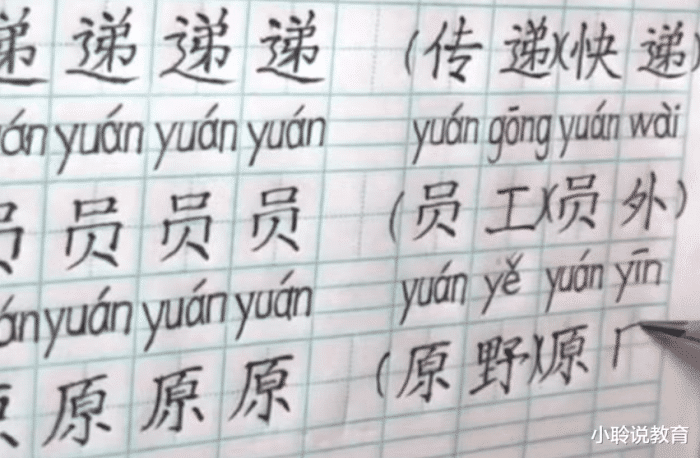 递 递 递 递 (传 递)(快 递)
yuán yuán yuán yuán gōng yuán wài
员 员 员 员 (员 工)(员 外)
yuán yuán yuán yuán yě yuán yīn
原 原 原 (原 野)(原
小聆说教育